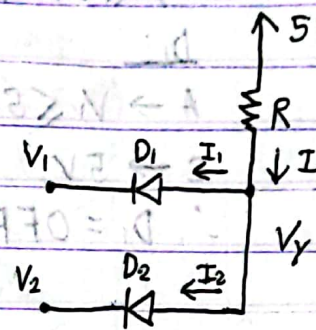 5
R
V₁ D₁ I₁ I
V_Y
V₂ D₂ I₂